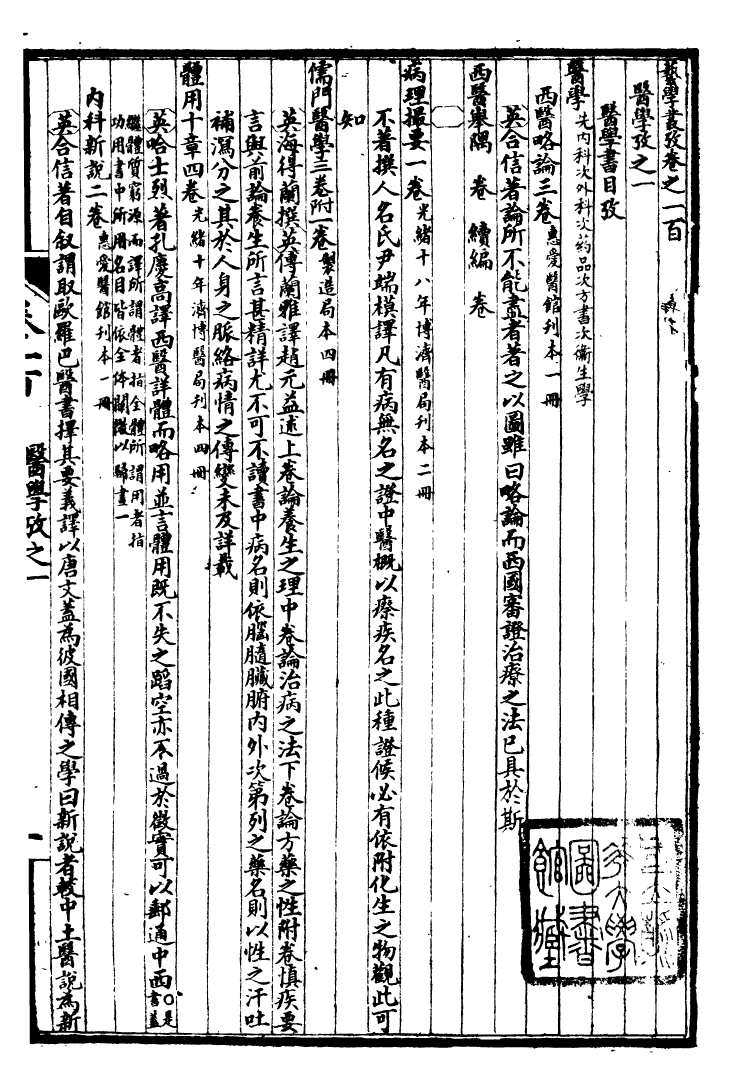 藝學書攷卷之一百
醫學攷之一
醫學書目攷
醫學 先內科次外科次葯品次方書次衞生學
西醫略論三卷 惠愛醫館刊本一冊
英合信著論所不能盡者著之以圖雖曰略論而西國審證治療之法已具於斯
西醫舉隅 卷 續編 卷
病理撮要一卷 光緒十八年博濟醫局刊本二冊
不著撰人名氏尹端模譯凡有病無名之證中醫概以瘵疾名之此種證候必有依附化生之物觀此可
知
儒門醫學三卷附一卷 製造局本四冊
英海得蘭撰英傅蘭雅譯趙元益述上卷論養生之理中卷論治病之法下卷論方藥之性附卷慎疾要
言與前論養生所言甚精詳尤不可不讀書中病名則依腦髓臟腑內外次第列之藥名則以性之汗吐
補瀉分之其於人身之脈絡病情之傳變未及詳載
體用十章四卷 光緒十年濟博醫局刊本四冊
英哈士烈著孔慶高譯西醫詳體而略用並言體用既不失之蹈空亦不過於徵實可以郵通中西〇是書蓋
繼體質窮源而譯所謂體者指全體所謂用者指
功用書中所用名目皆依全体闡微以歸畫一
內科新說二卷 惠愛醫館刊本一冊
英合信著自叙謂取歐羅巴醫書擇其要義譯以唐文蓋為彼國相傳之學曰新說者較中土醫說為新
醫學攷之一
一